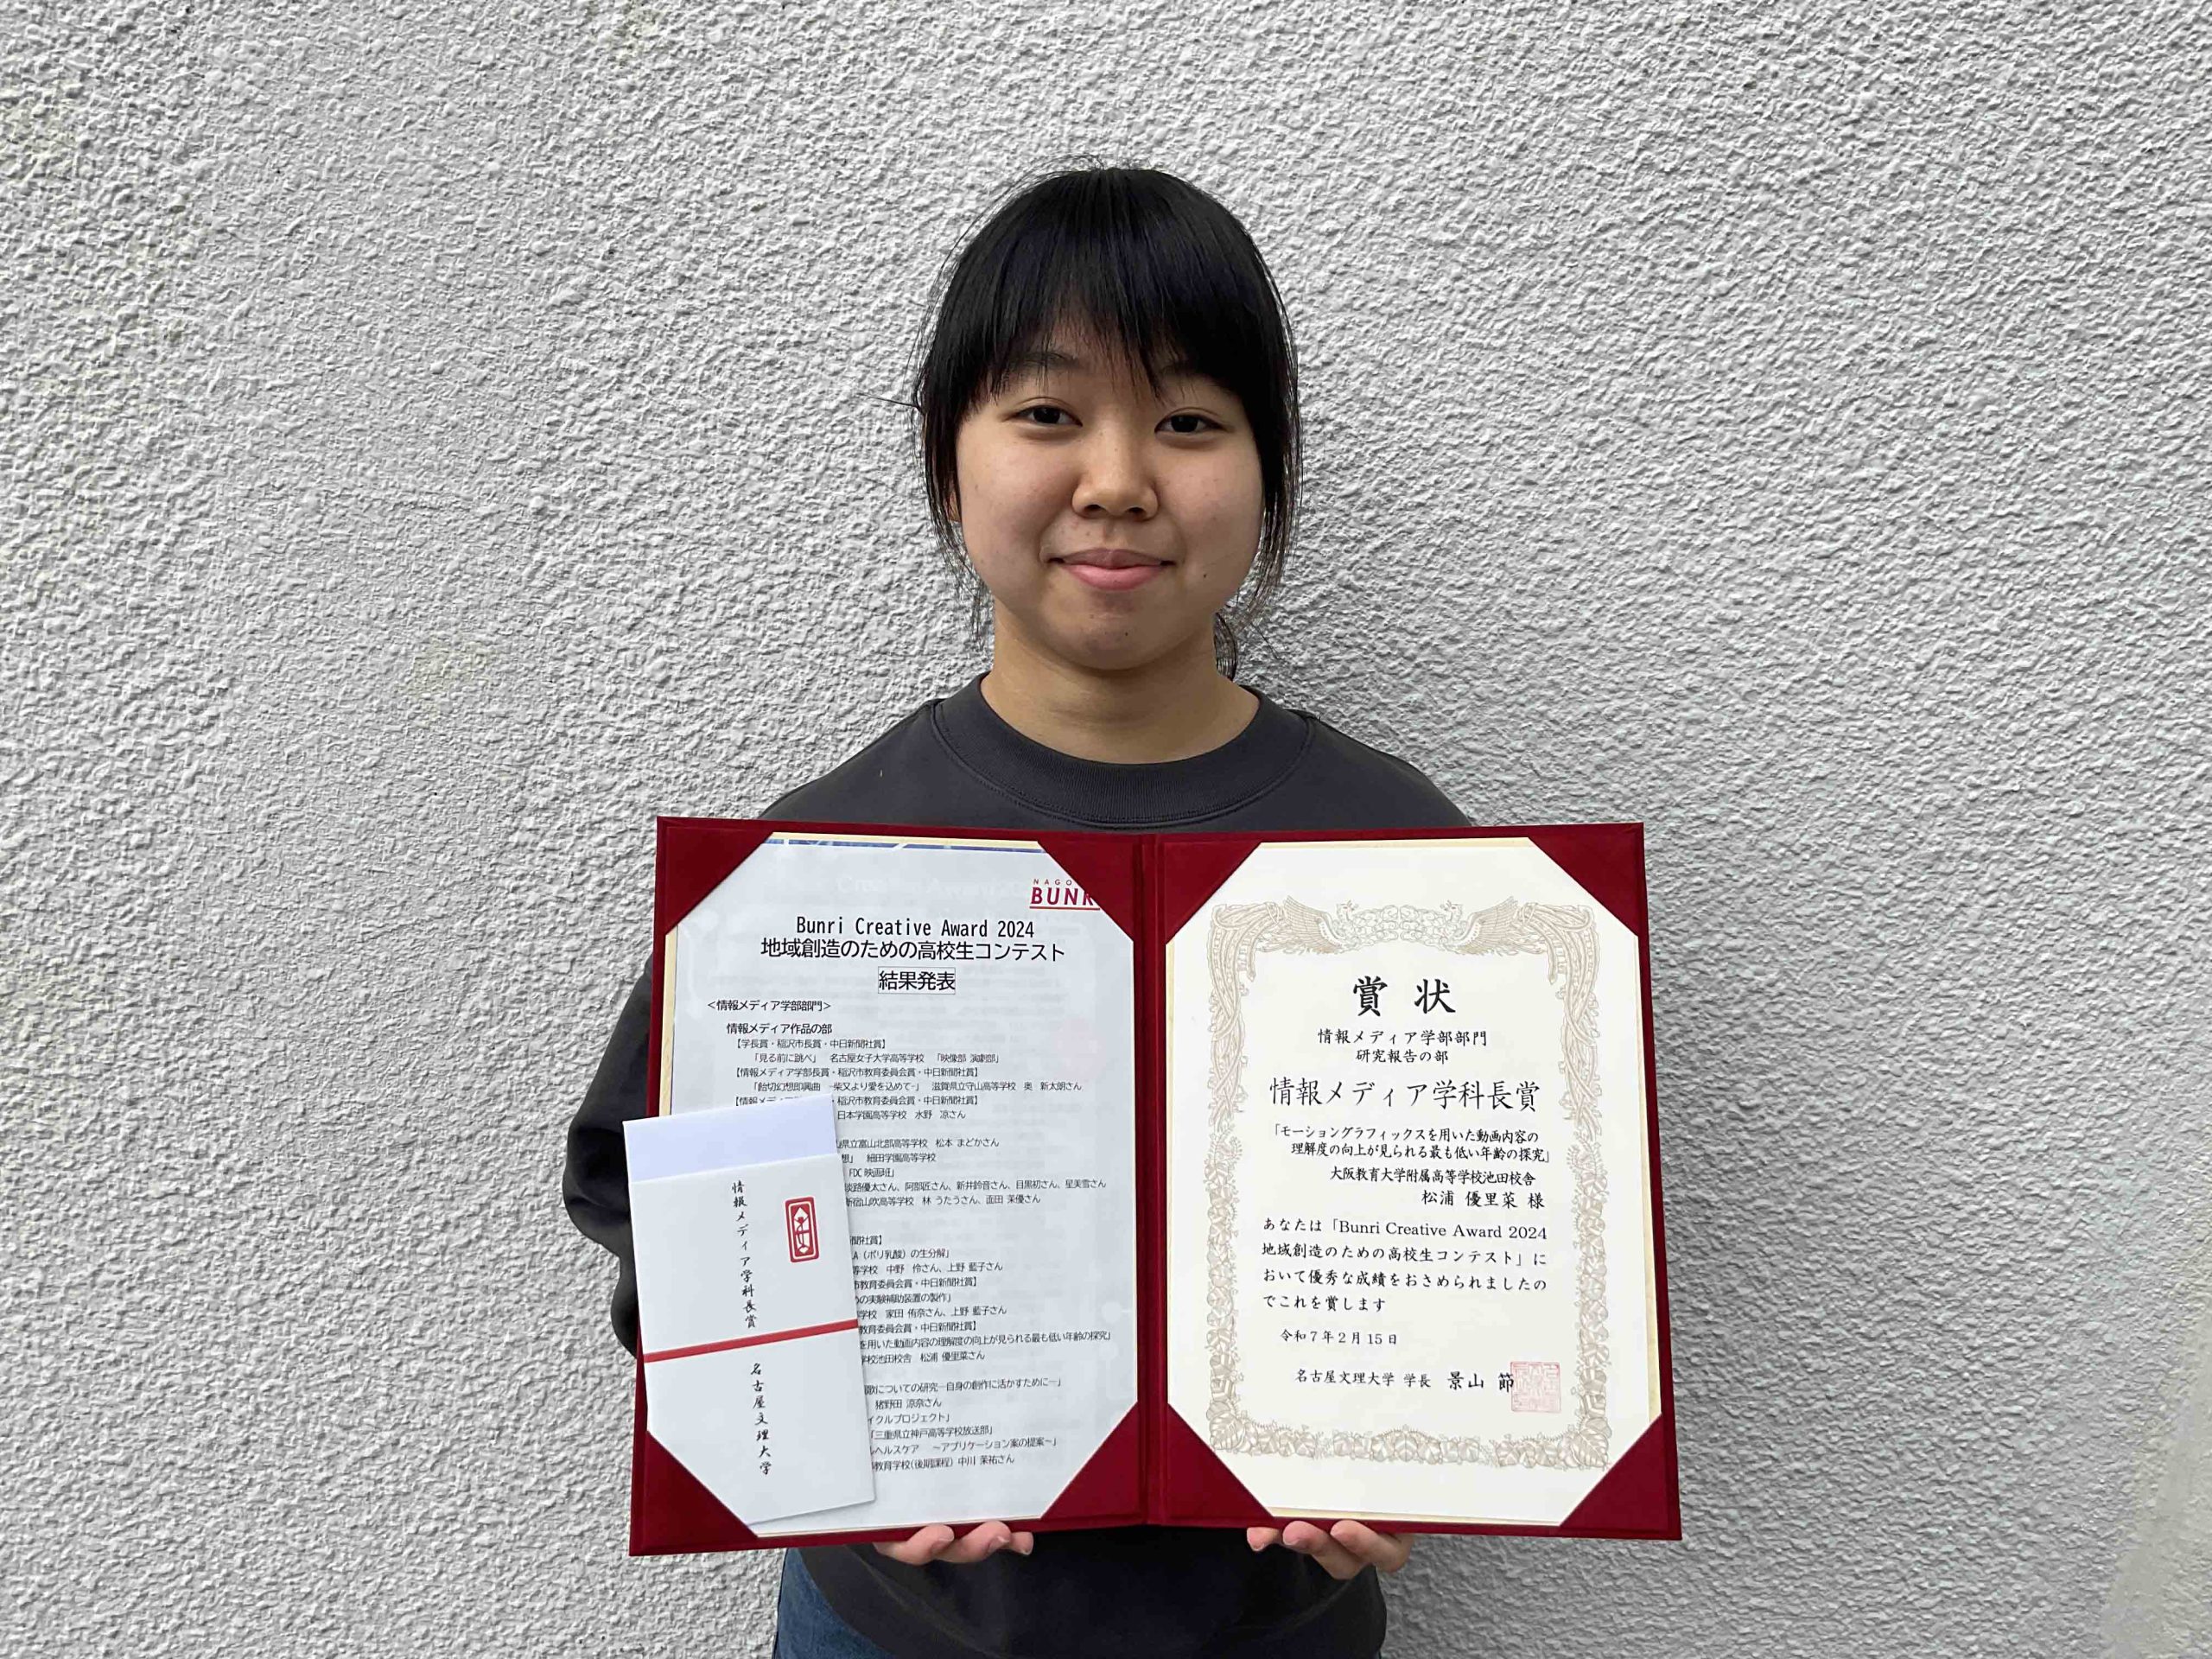 NAGO
BUNR
Bunri Creative Award 2024
地域創造のための高校生コンテスト
結果発表
＜情報メディア学部部門＞
情報メディア作品の部
【学長賞・稲沢市長賞・中日新聞社賞】
「見る前に跳べ」 名古屋女子大学高等学校 「映像部 演劇部」
【情報メディア学部長賞・稲沢市教育委員会賞・中日新聞社賞】
「飴切幻想即興曲 -柴又より愛を込めて-」 滋賀県立守山高等学校 奥 新太朗さん
【情報メディ
・稲沢市教育委員会賞・中日新聞社賞】
日本学園高等学校 水野 凉さん
県立富山北部高等学校 松本 まどかさん
想」 細田学園高等学校
FDC 映画班」
淡路優太さん、阿部匠さん、新井鈴音さん、目黒初さん、星美雪さん
新宿山吹高等学校 林 うたうさん、面田 茉優さん
聞社賞】
A（ポリ乳酸）の生分解」
等学校 中野 伶さん、上野 藍子さん
市教育委員会賞・中日新聞社賞】
の実験補助装置の製作」
学校 家田 侑奈さん、上野 藍子さん
教育委員会賞・中日新聞社賞】
を用いた動画内容の理解度の向上が見られる最も低い年齢の探究」
学校池田校舎 松浦 優里菜さん
歌についての研究―自身の創作に活かすために―」
猪野田 涼奈さん
イクルプロジェクト」
「三重県立神戸高等学校放送部」
ルヘルスケア ～アプリケーション案の提案～」
教育学校(後期課程) 中川 茉祐さん
情報メディア学科長賞
名古屋文理大学
賞状
情報メディア学部部門
研究報告の部
情報メディア学科長賞
「モーショングラフィックスを用いた動画内容の
理解度の向上が見られる最も低い年齢の探究」
大阪教育大学附属高等学校池田校舎
松浦 優里菜 様
あなたは「Bunri Creative Award 2024
地域創造のための高校生コンテスト」に
おいて優秀な成績をおさめられましたの
でこれを賞します
令和7年2月15日
名古屋文理大学 学長 景山 節